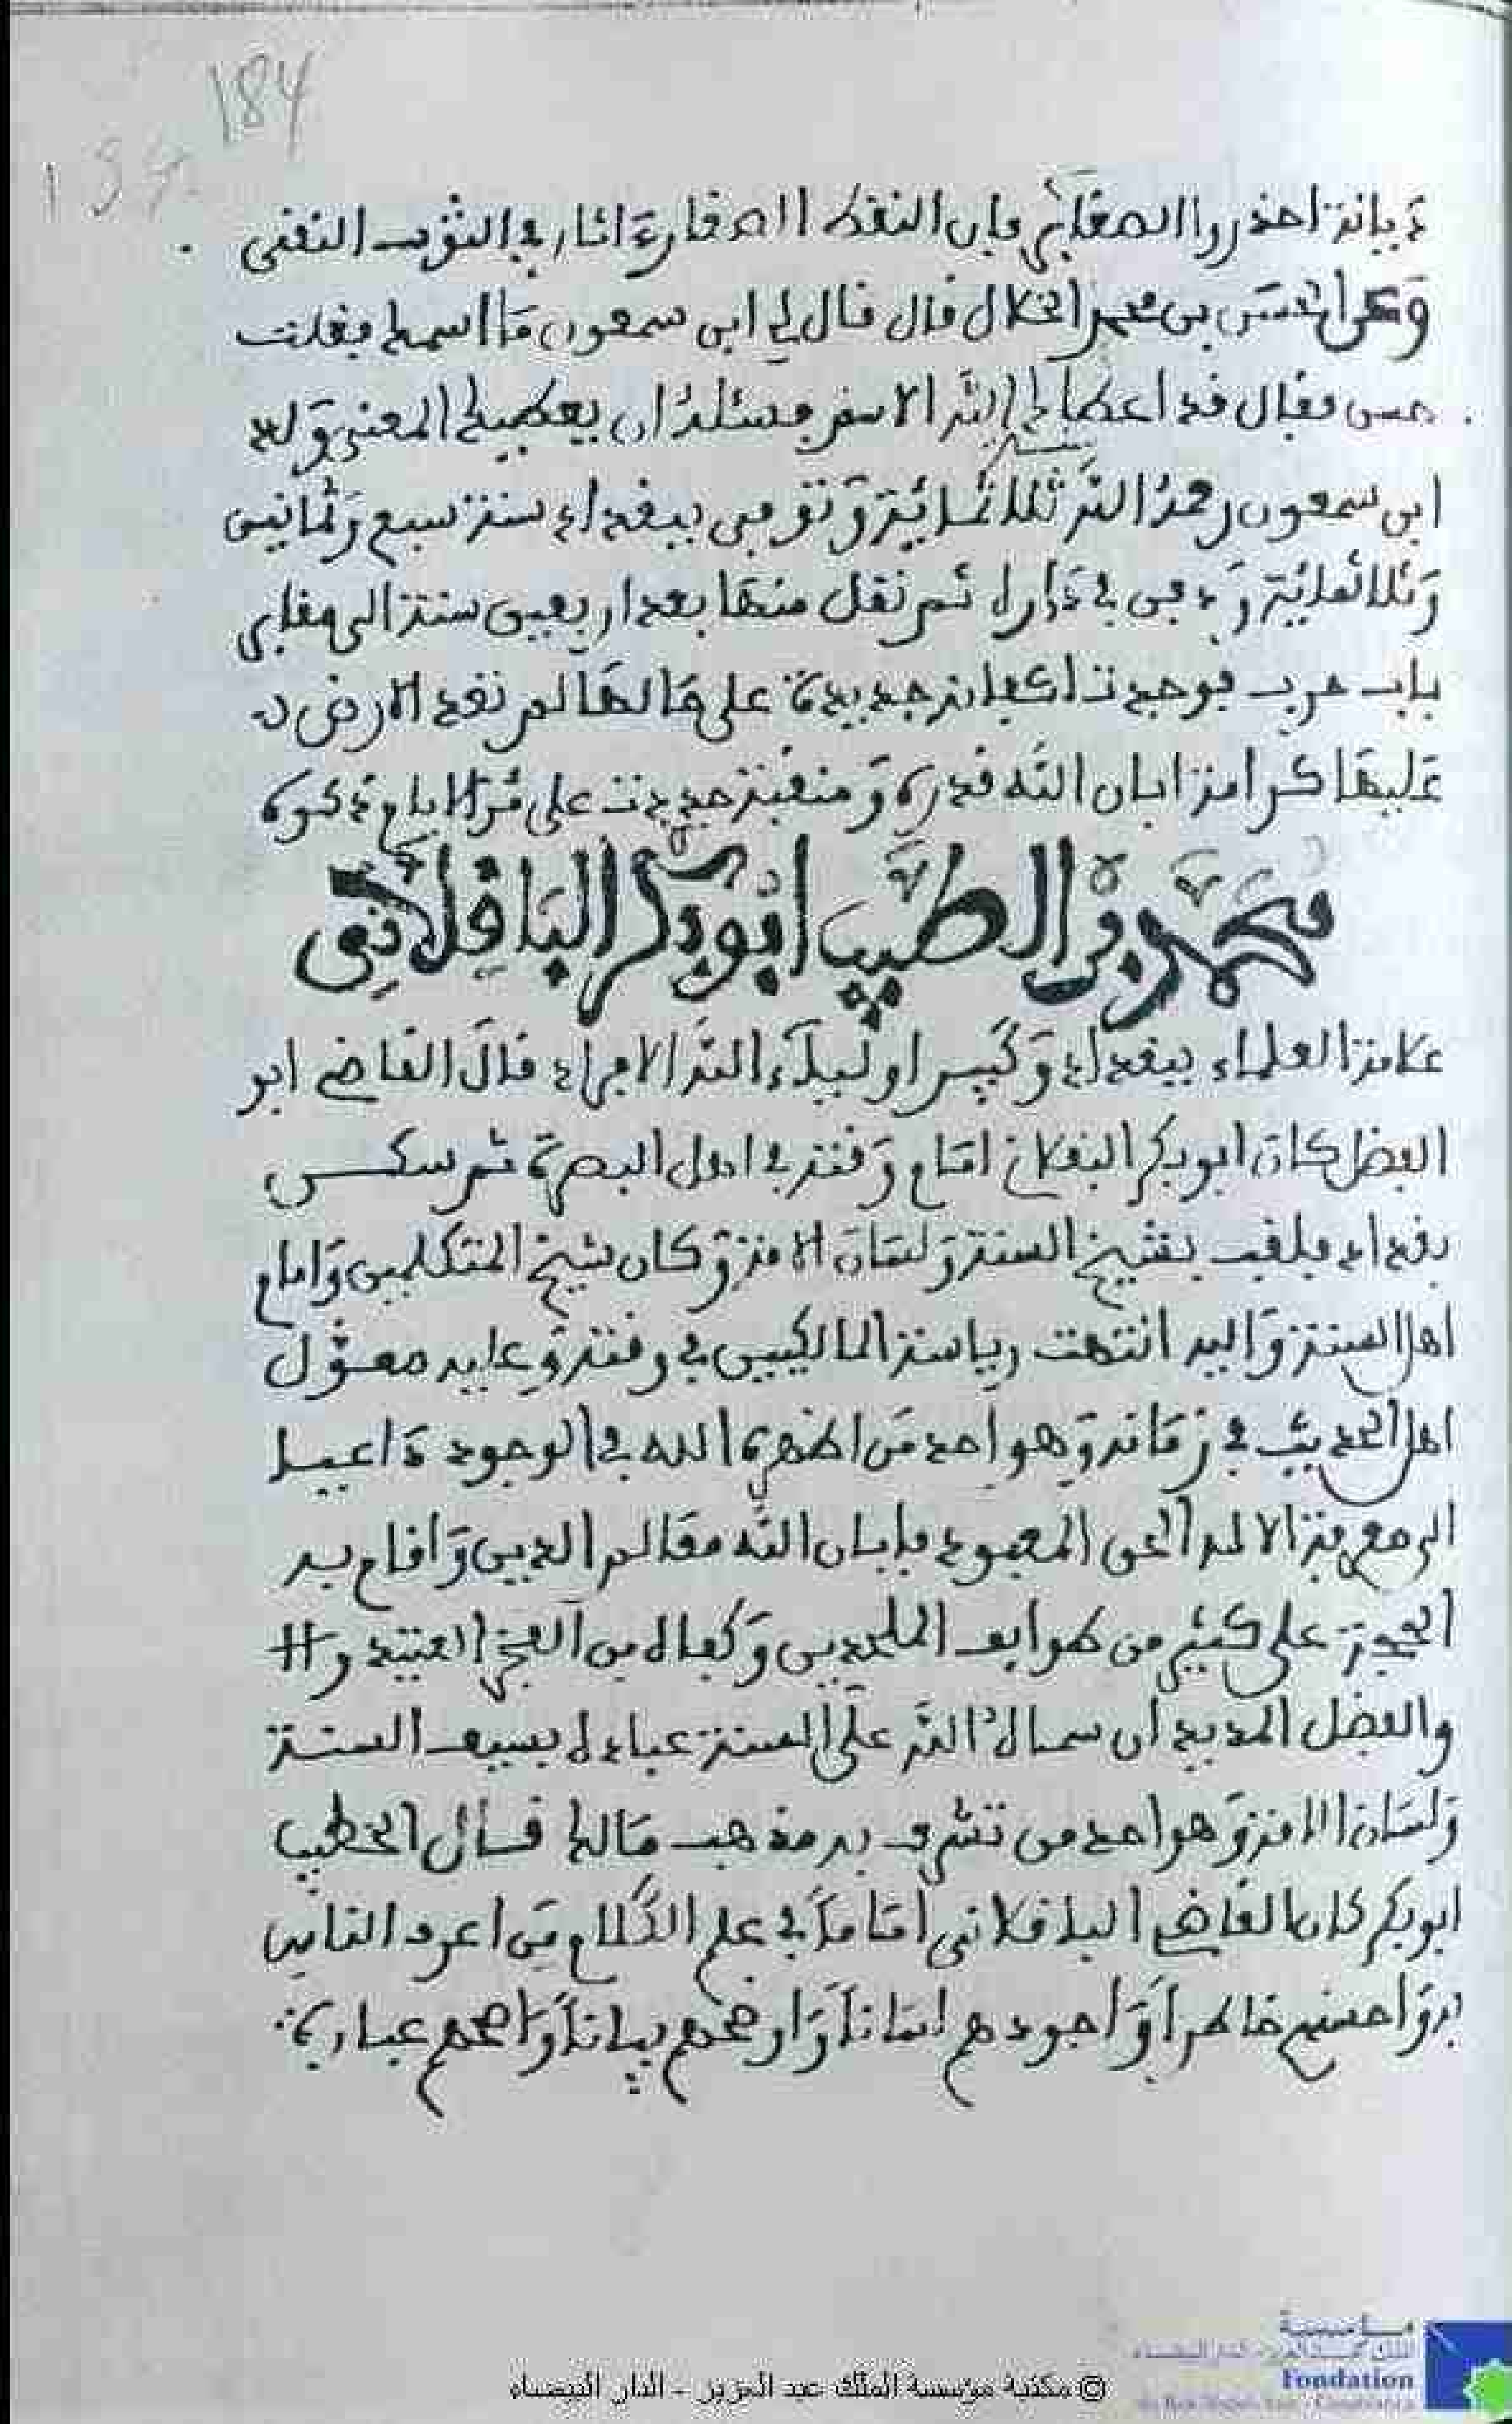 184
ديانة احذروا الصغائر فان النقط الصغار ءاثار في الثوب النقي
وعن الحسن بن محمد الخلال قال قال لي ابن سمعون ما اسمك فقلت
حسن فقال قد اعطاك الله الاسم فسئله ان يعطيك المعنى ولد
ابن سمعون رحمه الله سنة ثلاثمائة وتوفي ببغداد سنة سبع وثمانين
وثلاثمائة ودفن في داره ثم نقل منها بعد اربعين سنة الى مقابر
باب حرب فوجدت اكفانه جديدة على حالها لم تقد الارض
عليها كرامة ابان الله قدره ومنقبة جددت على مر الايام ذكره
محمد بن الطيب ابو بكر الباقلاني
علامة العلماء ببغداد وكبير اولياء الله الافراد قال القاضي ابو
الفضل كان ابو بكر البقلاني امام وقته في اهل البصرة ثم سكن
بغداد يلقب بشيخ السنة ولسان الامة وكان شيخ المتكلمين وامام
اهل السنة واليه انتهت رياسة المالكيين في وقته وعليه معول
اهل الحديث في زمانه وهو احد من اظهره الله في الوجود داعيا
الى معرفة الاله الحق المعبود فابان الله معالم الدين واقام به
الحجة على كثير من طوايف الملحدين وكفاه من الفخر العتيد و
والفضل المديد ان سماه الله على السنة عباده بسيف السنة
ولسان الامة وهو احد من تشرف به مذهب مالك قال الخطيب
ابو بكر كان القاضي الباقلاني اماما في علم الكلام من اعرف الناس
به واحسنهم خاطرا واجودهم لسانا واوضحهم بيانا واصحهم عبارة
© مكتبة مؤسسة الملك عبد العزيز - الدار البيضاء
مؤسسة
Fondation